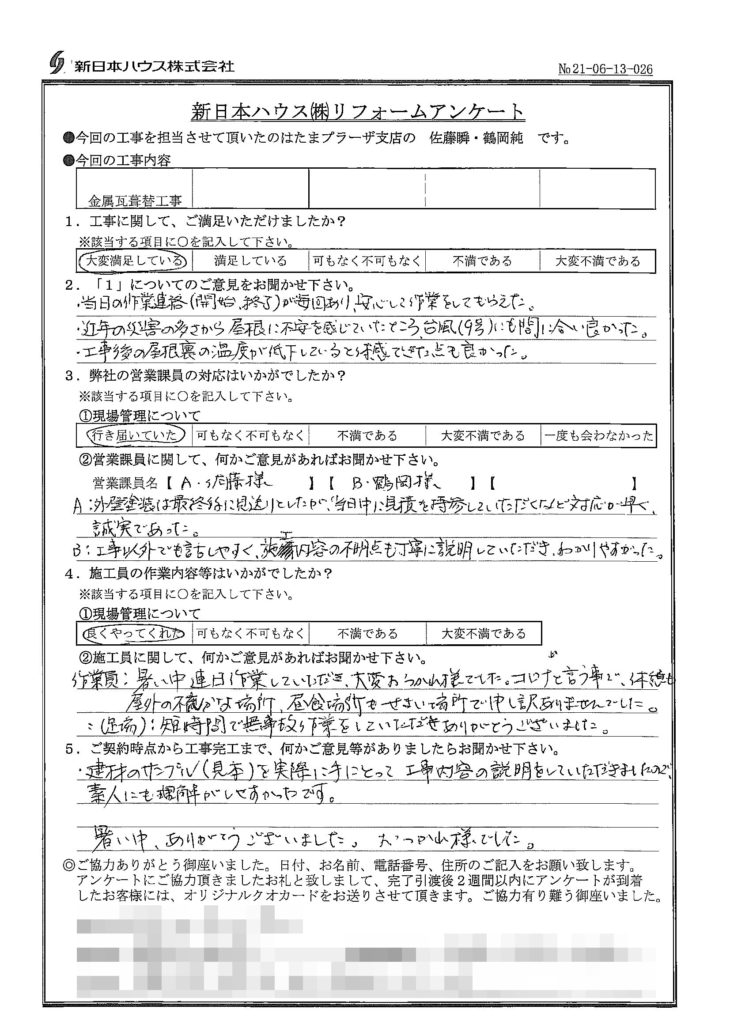 新日本ハウス株式会社
№21-06-13-026
新日本ハウス㈱リフォームアンケート
●今回の工事を担当させて頂いたのはたまプラーザ支店の 佐藤瞬・鶴岡純 です。
●今回の工事内容
金属瓦葺替工事
1．工事に関して、ご満足いただけましたか？
※該当する項目に○を記入して下さい。
大変満足している 満足している 可もなく不可もなく 不満である 大変不満である
2．「1」についてのご意見をお聞かせ下さい。
・当日の作業連絡(開始、終了)が毎回あり、安心して作業をしてもらえた。
・近年の災害の多さから屋根に不安を感じていたところ、台風(9号)にも間に合い良かった。
・工事後の屋根裏の温度が低下していると体感できた点も良かった。
3．弊社の営業課員の対応はいかがでしたか？
※該当する項目に○を記入して下さい。
①現場管理について
行き届いていた 可もなく不可もなく 不満である 大変不満である 一度も会わなかった
②営業課員に関して、何かご意見があればお聞かせ下さい。
営業課員名【 A・佐藤様 】【 B・鶴岡様 】【 】
A：外壁塗装は最終的に見送りとしたが、当日中に見積を持参していただくなど対応が早く、
誠実であった。
B：工事以外でも話しやすく、施工内容の不明点も丁寧に説明していただき、わかりやすかった。
4．施工員の作業内容等はいかがでしたか？
※該当する項目に○を記入して下さい。
①現場管理について
良くやってくれた 可もなく不可もなく 不満である 大変不満である
②施工員に関して、何かご意見があればお聞かせ下さい。
作業員：暑い中連日作業していただき、大変おつかれ様でした。コロナと言う事で、休憩も
屋外の不確かな場所、昼食場所もせまい場所で申し訳ありませんでした。
：(足場)：短時間で無事故作業をしていただきありがとうございました。
5．ご契約時点から工事完工まで、何かご意見等がありましたらお聞かせ下さい。
・建材のサンプル(見本)を実際に手にとって工事内容の説明をしていただきましたので、
素人にも理解がしやすかったです。
暑い中、ありがとうございました。おつかれ様でした。
◎ご協力ありがとう御座いました。日付、お名前、電話番号、住所のご記入をお願い致します。
アンケートにご協力頂きましたお礼と致しまして、完了引渡後2週間以内にアンケートが到着
したお客様には、オリジナルクオカードをお送りさせて頂きます。ご協力有り難う御座いました。